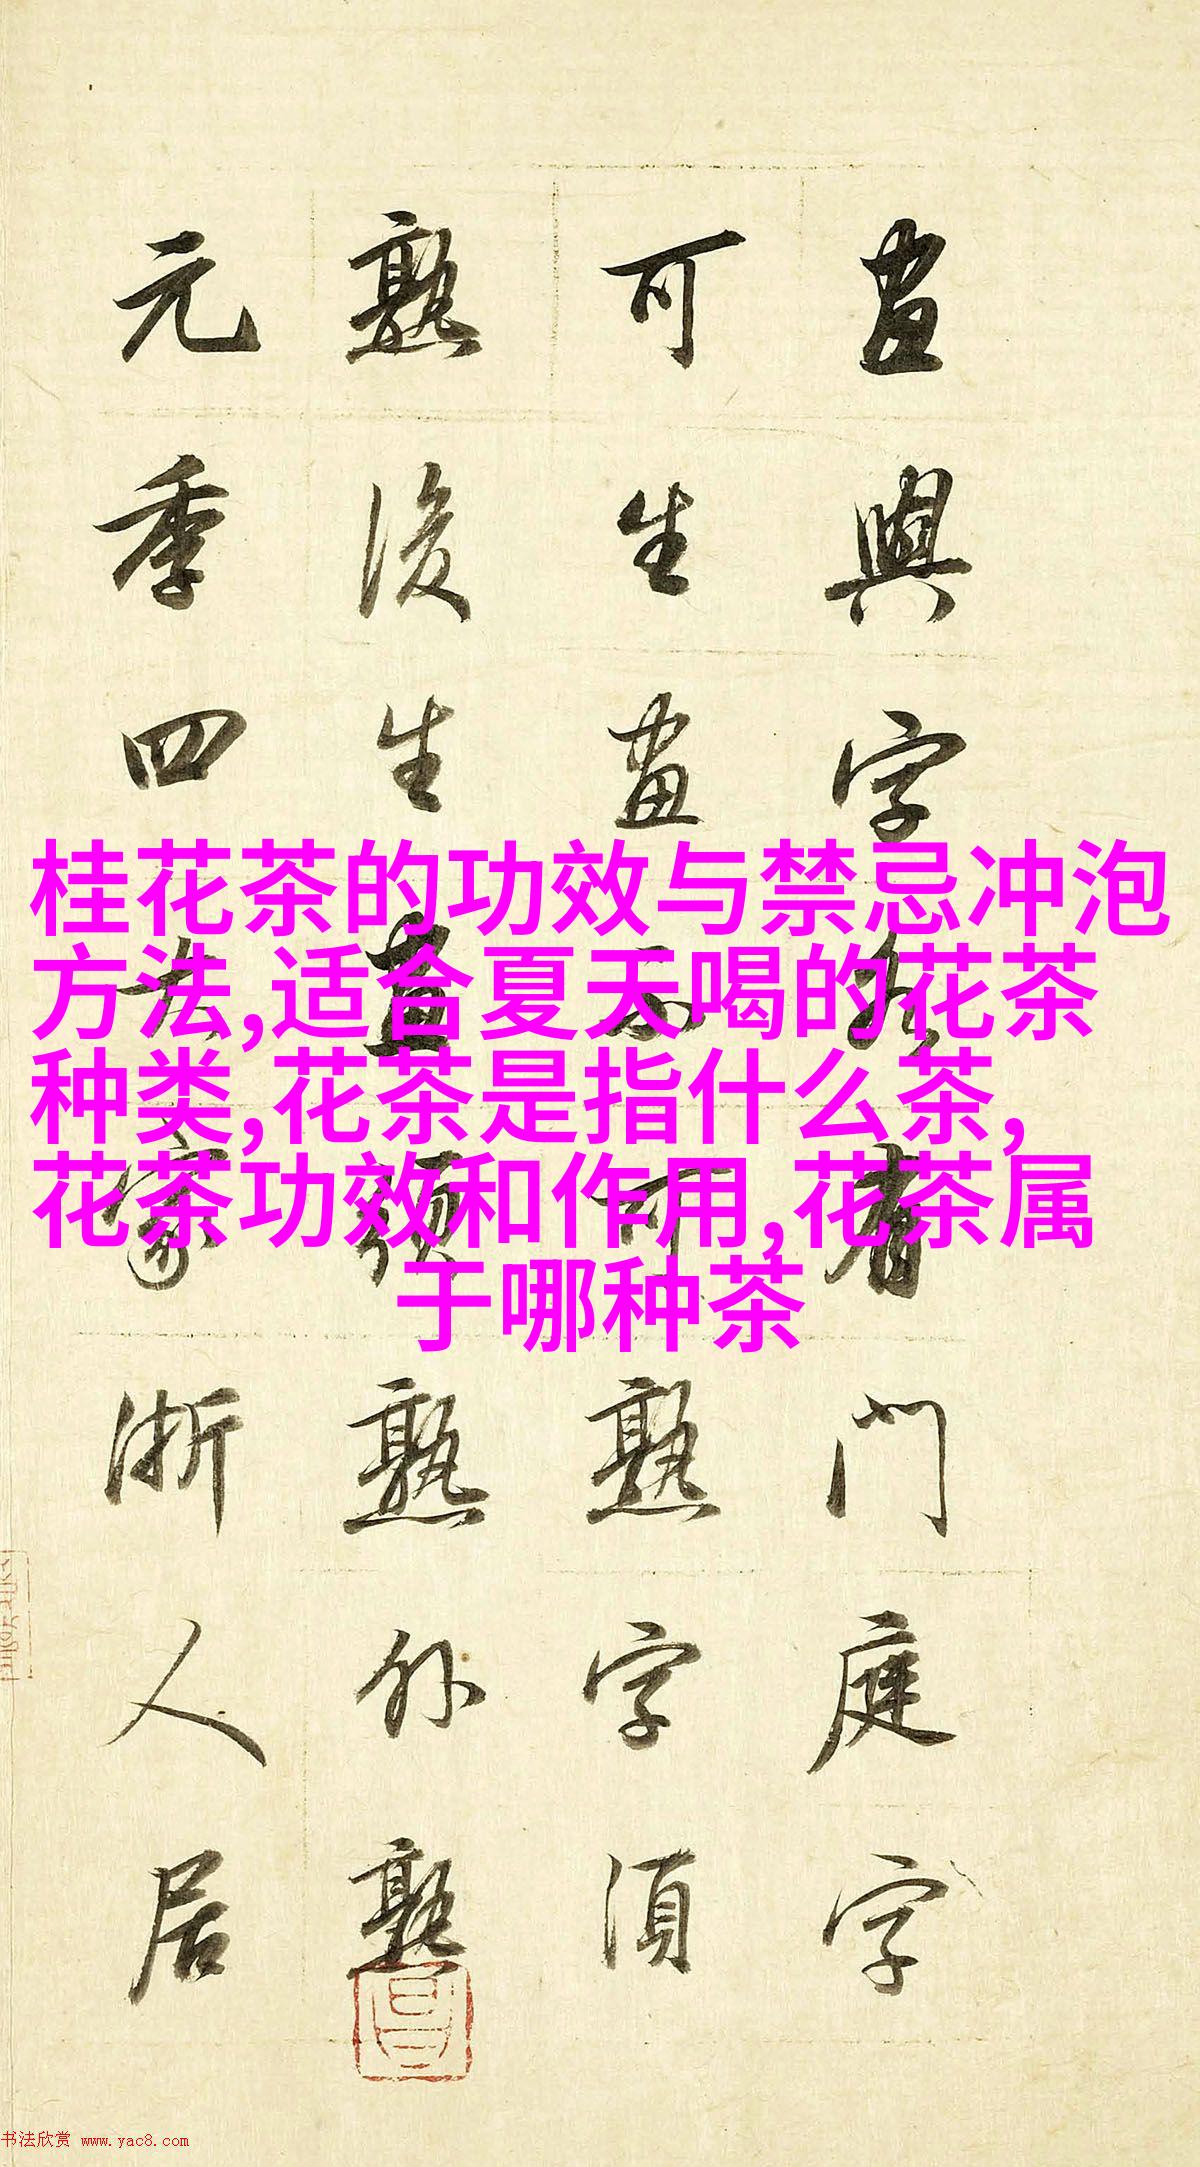 畫與字各有門庭字
可生畫不可熟字須
熟後生畫須熟外熟
元季四大家浙人居
桂花茶的功效与禁忌冲泡
方法,适合夏天喝的花茶
种类,花茶是指什么茶,
花茶功效和作用,花茶属
于哪种茶
书法欣赏 www.yac8.com